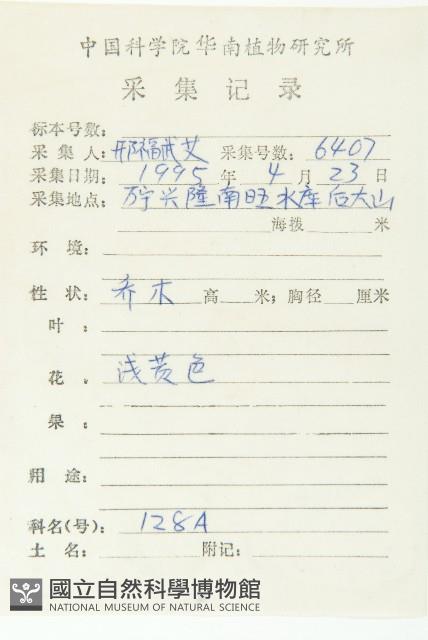 中国科学院华南植物研究所
采集记录
标本号数:
采集人: 邢福武 采集号数: 6407
采集日期: 1995 年 4 月 23 日
采集地点: 万宁兴隆南旺水库后大山
海拨 米
环境:
性状: 乔木 高 米; 胸径 厘米
叶:
花: 浅黄色
果:
用途:
科名(号): 128A
土名: 附记:
國立自然科學博物館
NATIONAL MUSEUM OF NATURAL SCIENCE